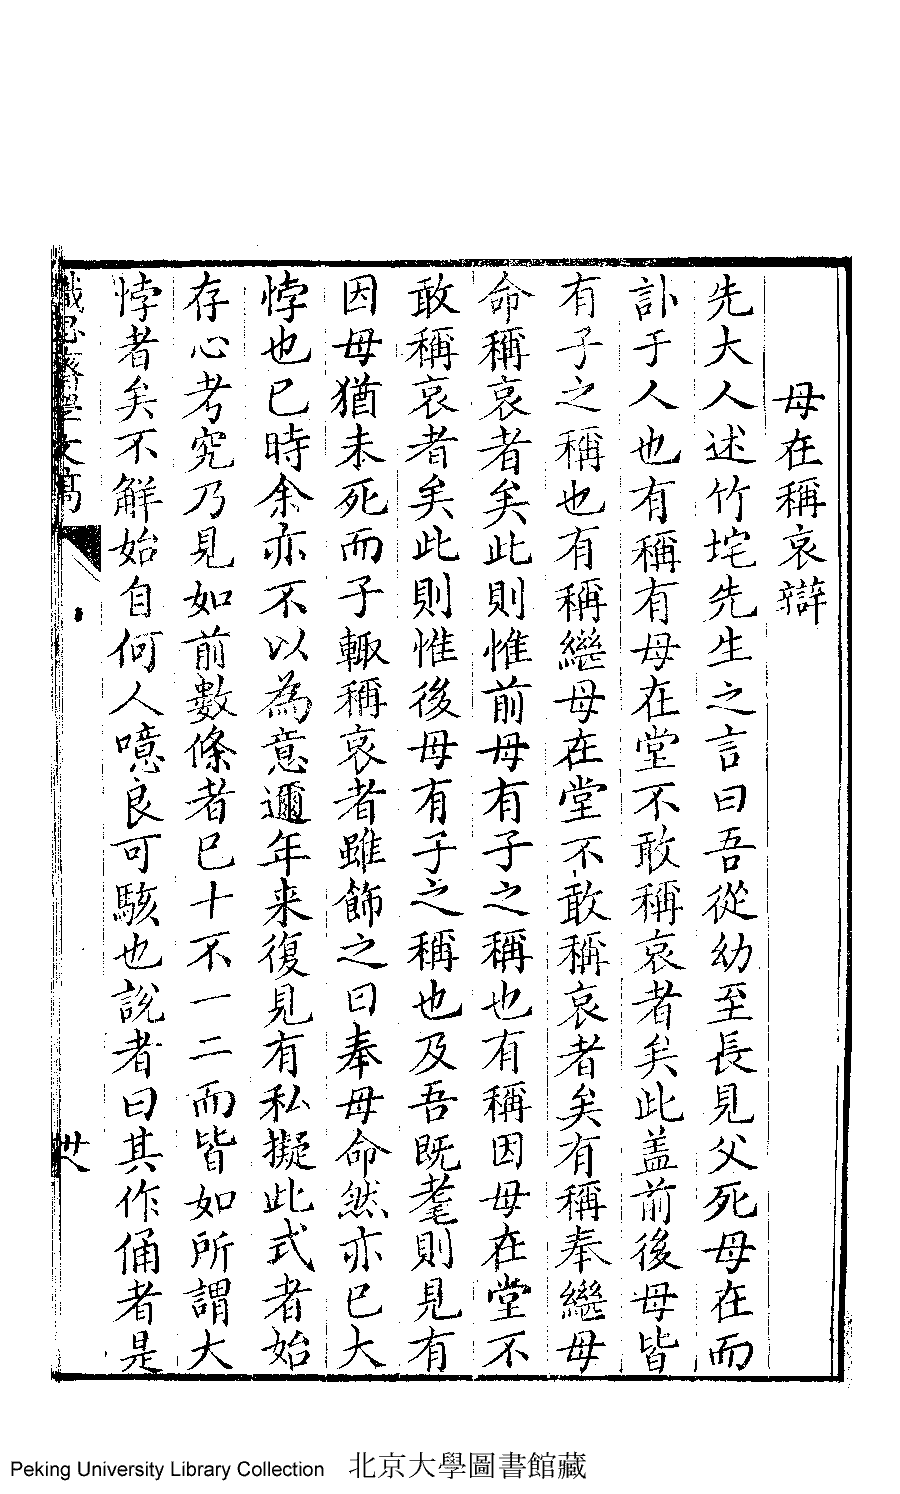 母在稱哀辯
先大人述竹垞先生之言曰吾從幼至長見父死母在而
訃于人也有稱有母在堂不敢稱哀者矣此盖前後母皆
有子之稱也有稱繼母在堂不敢稱哀者矣有稱奉繼母
命稱哀者矣此則惟前母有子之稱也有稱因母在堂不
敢稱哀者矣此則惟後母有子之稱也及吾既耄則見有
因母猶未死而子輙稱哀者雖飾之曰奉母命然亦已大
悖也已時余亦不以為意邇年来復見有私擬此式者始
存心考究乃見如前數條者已十不一二而皆如所謂大
悖者矣不觧始自何人噫良可駭也說者曰其作俑者是
文高
卅八
Peking University Library Collection 北京大學圖書館藏